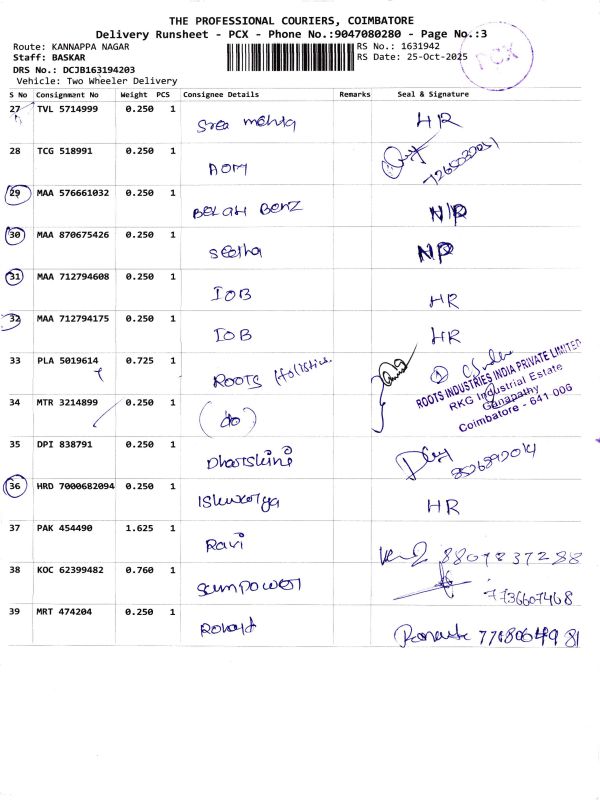 THE PROFESSIONAL COURIERS, COIMBATORE
Delivery Runsheet - PCX - Phone No.:9047080280 - Page No.:3
Route: KANNAPPA NAGAR
RS No.: 1631942
Staff: BASKAR
RS Date: 25-Oct-2025
DRS No.: DCJB163194203
Vehicle: Two Wheeler Delivery
PCX
S No Consignment No Weight PCS Consignee Details Remarks Seal & Signature
27 TVL 5714999 0.250 1 HR
28 TCG 518991 0.250 1 AOM
29 MAA 576661032 0.250 1 BELAH BENZ N/P
30 MAA 870675426 0.250 1 Seetha NP
31 MAA 712794608 0.250 1 IOB HR
32 MAA 712794175 0.250 1 IOB HR
33 PLA 5019614 0.725 1 ROOTS Holistic
ROOTS INDUSTRIES INDIA PRIVATE LIMITED
RKG Industrial Estate
Ganapathy
Coimbatore - 641 006
34 MTR 3214899 0.250 1 (do)
35 DPI 838791 0.250 1 Dharshini
36 HRD 7000682094 0.250 1 HR
37 PAK 454490 1.625 1 Ravi
38 KOC 62399482 0.760 1 Sunpower 7736607468
39 MRT 474204 0.250 1